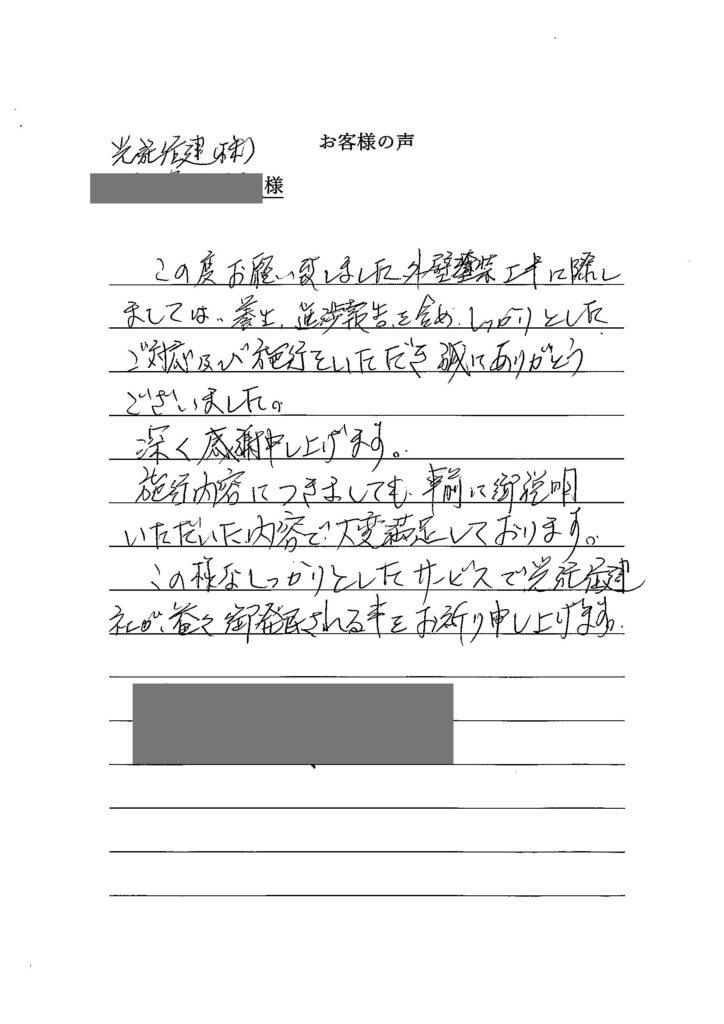 お客様の声
光託住建(株)
様
この度お願い致しました外壁塗装工事に際し
ましては、養生、進渉報告を含め、しっかりとした
ご対応及び施行をいただき誠にありがとう
ございました。
深く感謝申し上げます。
施行内容につきましても、事前に御説明
いただいた内容で、大変満足しております。
この様なしっかりとしたサービスで光託住建
社が、益々御発展される事をお祈り申し上げます。